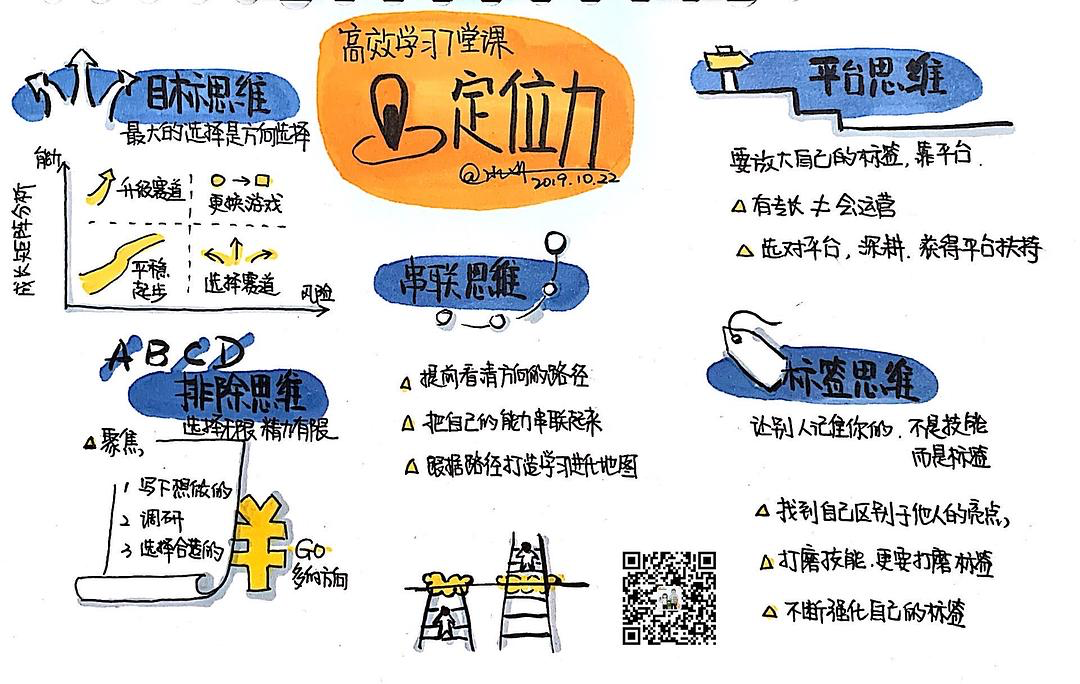 高效学习7堂课
定位力
2019.10.22
目标思维
最大的选择是方向选择
成长矩阵分析
能力
升级赛道
更换游戏
平稳
起步
选择赛道
风险
ABCD
排除思维
选择无限 精力有限
聚焦,
1 写下想做的
2 调研
3 选择合适的
GO
多的方向
串联思维
提前看清方向的路径
把自己的能力串联起来
跟据路径打造学习进化地图
平台思维
要放大自己的标签,靠平台.
有专长 ≠ 会运营
选对平台,深耕.获得平台扶持
标签思维
让别人记住你的.不是技能
而是标签
找到自己区别于他人的亮点,
打磨技能.更要打磨标签
不断强化自己的标签